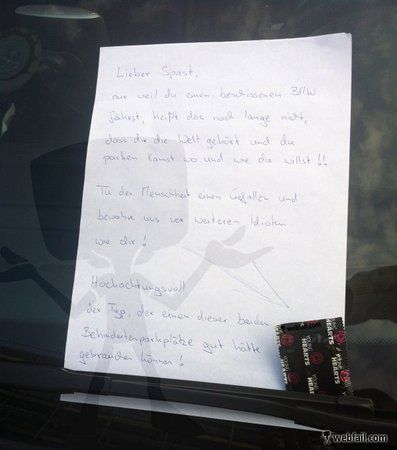 Lieber Spast,
nur weil du einen beschissenen BMW
fährst, heißt das noch lange nicht,
dass dir die Welt gehört und du
parken kannst wo und wie du willst!!
Tu der Menschheit einen Gefallen und
bewahre uns vor weiteren Idioten
wie dir!
Hochachtungsvoll
der Typ, der einen dieser beiden
Behindertenparkplätze gut hätte
gebrauchen können!
webfail.com
HEARTS
HEARTS
webfail.com